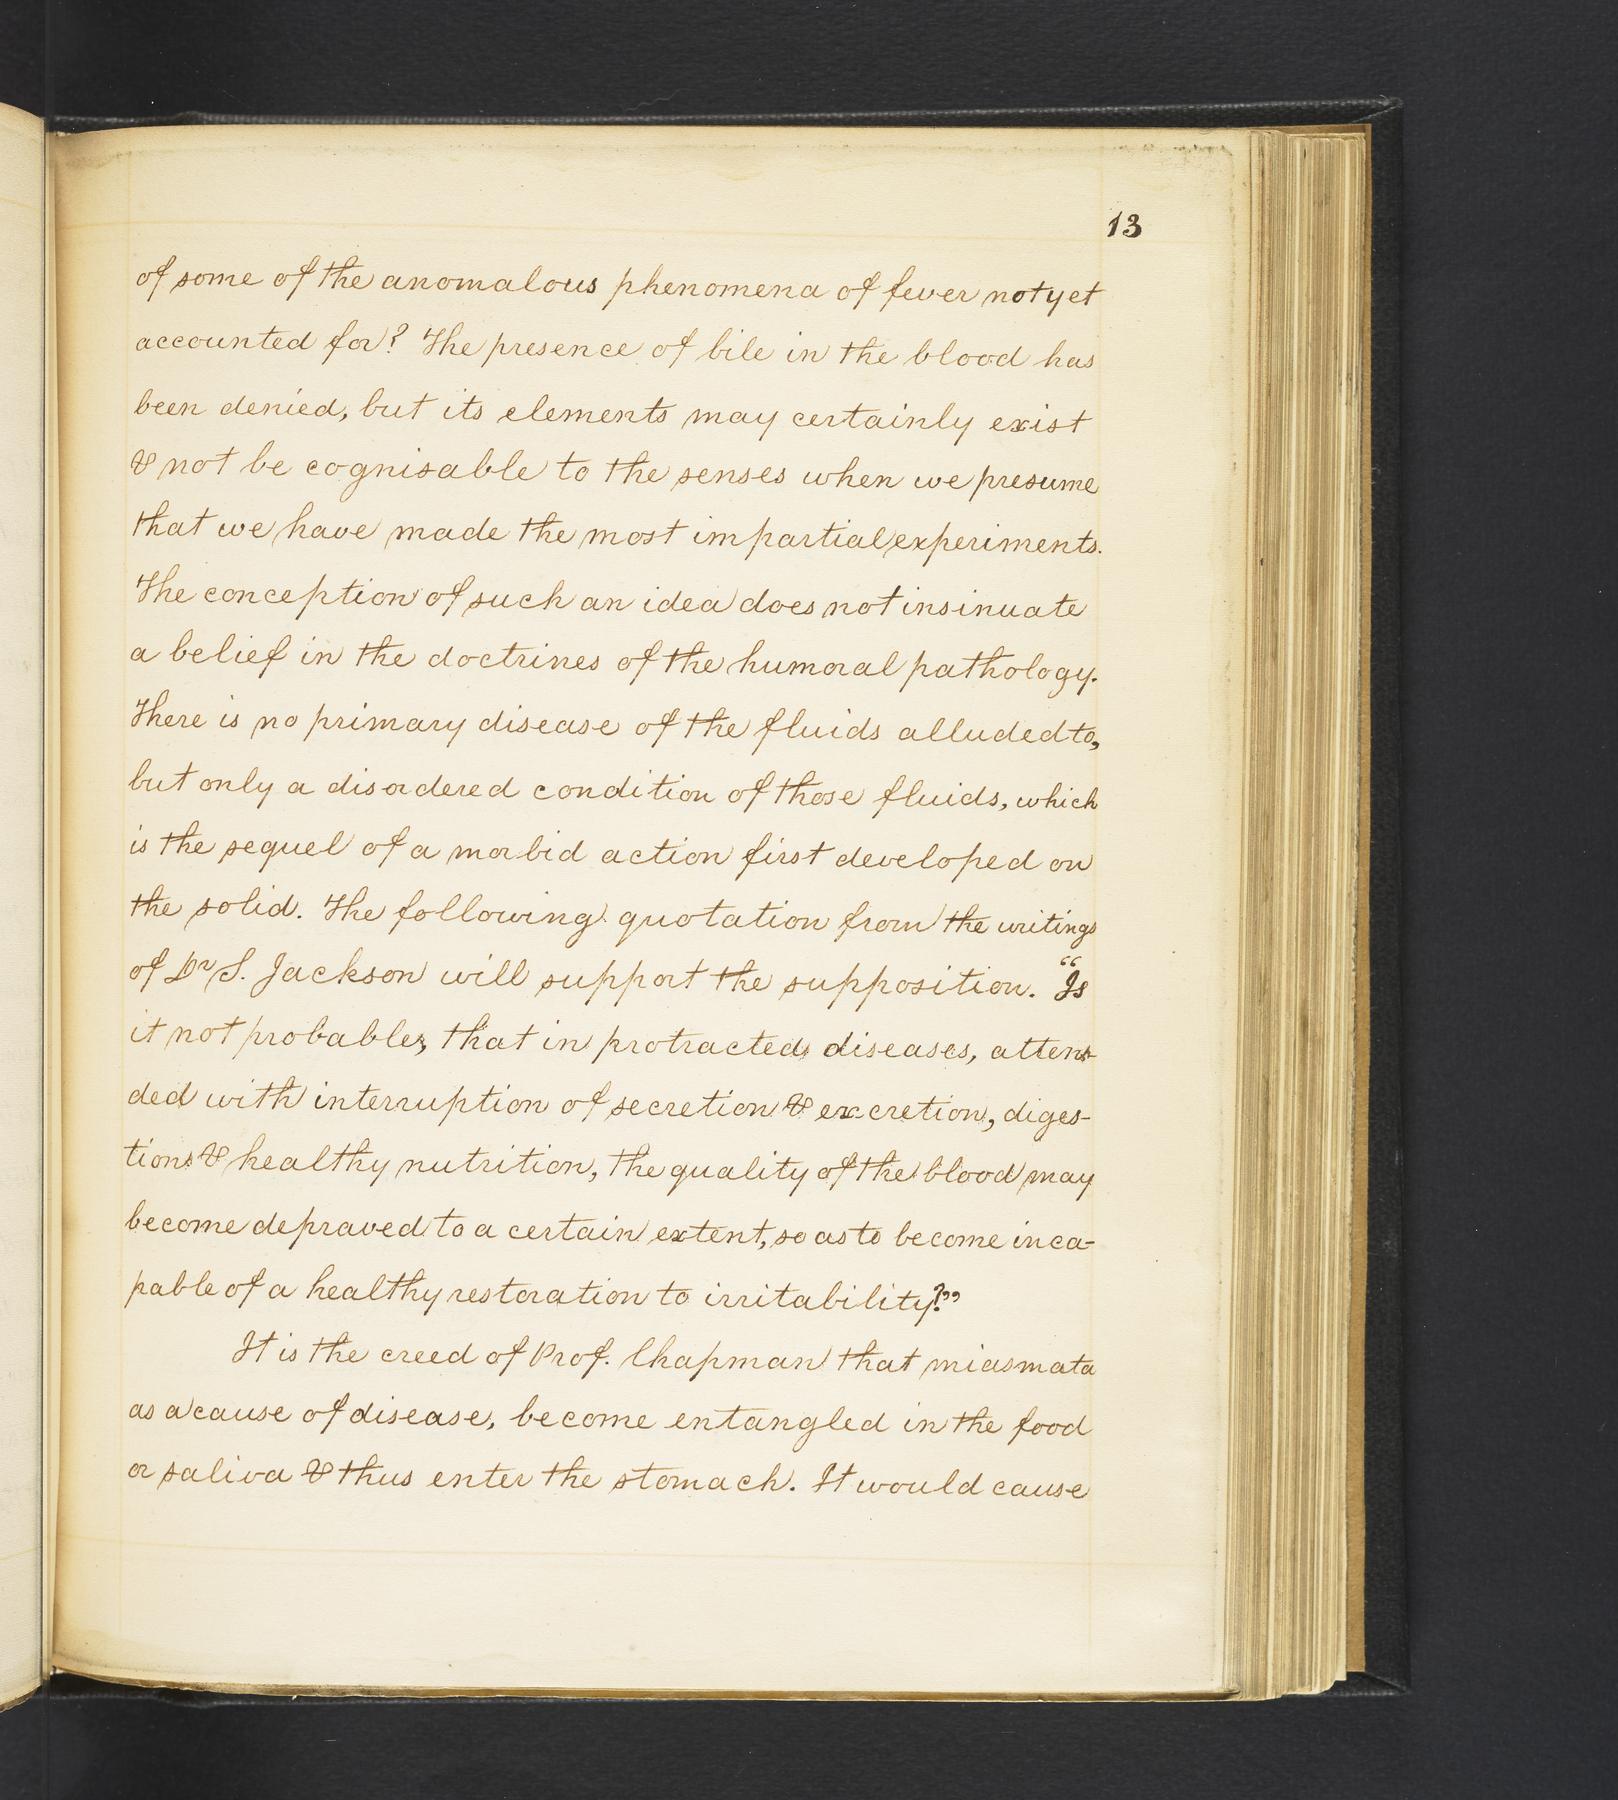 13
of some of the anomalous phenomena of fever not yet
accounted for? The presence of bile in the blood has
been denied, but its elements may certainly exist
& not be cognisable to the senses when we presume
that we have made the most impartial experiments.
The conception of such an idea does not insinuate
a belief in the doctrines of the humoral pathology.
There is no primary disease of the fluids alluded to,
but only a disordered condition of those fluids, which
is the sequel of a morbid action first developed on
the solid. The following quotation from the writings
of Dr S. Jackson will support the supposition. "Is
it not probable, that in protracted diseases, atten-
ded with interruption of secretion & excretion, diges-
tion & healthy nutrition, the quality of the blood may
become depraved to a certain extent, so as to become inca-
pable of a healthy restoration to irritability?"
It is the creed of Prof. Chapman that miasmata
as a cause of disease, become entangled in the food
or saliva & thus enter the stomach. It would cause